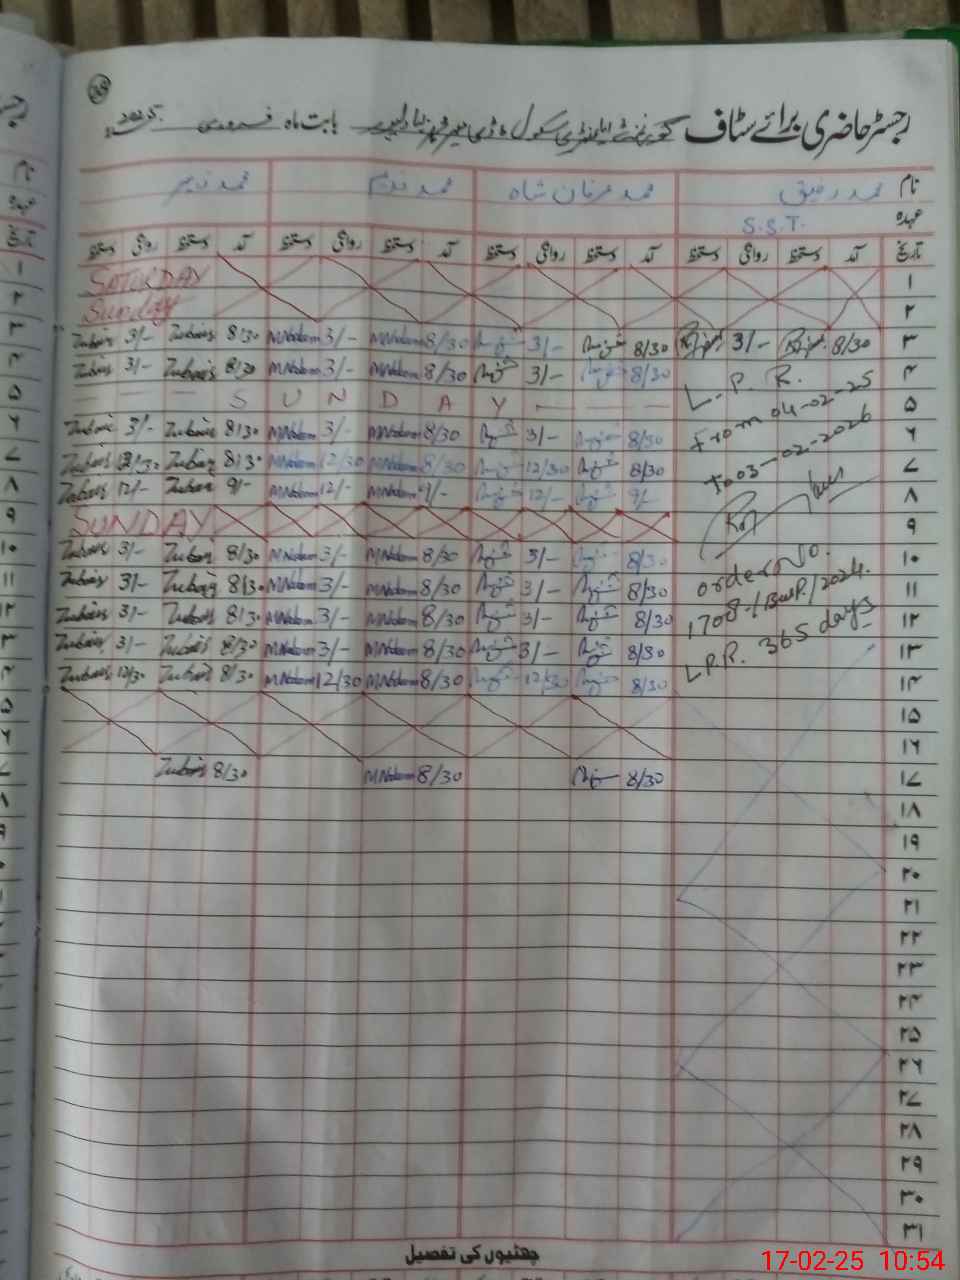 رجسٹر حاضری برائے سٹاف گورنمنٹ ایلیمنٹری سکول بابت ماہ فروری 2025
نام محمد رفیق محمد عرفان شاہ محمد ندیم محمد زبیر
عہدہ S.S.T.
تاریخ آمد دستخط روانگی دستخط آمد دستخط روانگی دستخط آمد دستخط روانگی دستخط آمد دستخط روانگی دستخط
۱ SATURDAY
۲ Sunday
۳ 8/30 3/- 8/30 3/- MNadeem 8/30 MNadeem 3/- Zubair 8/30 Zubair 3/-
۴ L.P.R. 8/30 3/- MNadeem 8/30 MNadeem 3/- Zubair 8/30 Zubair 3/-
۵ From 04-02-25 — — — S U N D A Y — —
۶ To 03-02-2026 8/30 3/- MNadeem 8/30 MNadeem 3/- Zubair 8/30 Zubair 3/-
۷ 8/30 12/30 MNadeem 8/30 MNadeem 12/30 Zubair 8/30 Zubair 12/30
۸ 9/- 12/- MNadeem 9/- MNadeem 12/- Zubair 9/- Zubair 12/-
۹ SUNDAY
۱۰ order No. 8/30 3/- MNadeem 8/30 MNadeem 3/- Zubair 8/30 Zubair 3/-
۱۱ 1708-/BWP/2024. 8/30 3/- MNadeem 8/30 MNadeem 3/- Zubair 8/30 Zubair 3/-
۱۲ L.P.R. 365 days 8/30 3/- MNadeem 8/30 MNadeem 3/- Zubair 8/30 Zubair 3/-
۱۳ 8/30 3/- MNadeem 8/30 MNadeem 3/- Zubair 8/30 Zubair 3/-
۱۴ 8/30 12/30 MNadeem 8/30 MNadeem 12/30 Zubair 8/30 Zubair 12/30
۱۵
۱۶
۱۷ 8/30 MNadeem 8/30 Zubair 8/30
۱۸
۱۹
۲۰
۲۱
۲۲
۲۳
۲۴
۲۵
۲۶
۲۷
۲۸
۲۹
۳۰
۳۱
چھٹیوں کی تفصیل
17-02-25 10:54